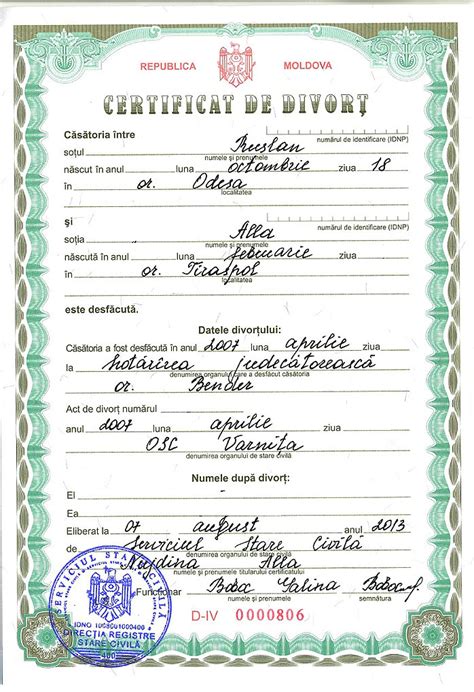 REPUBLICA MOLDOVA
CERTIFICAT DE DIVORȚ
Căsătoria între
numărul de identificare (IDNP)
soțul Ruslan
numele și prenumele
născut în anul luna octombrie ziua 18
în or. Odesa
localitatea
și
numărul de identificare (IDNP)
soția Alla
numele și prenumele
născută în anul luna februarie ziua
în or. Tiraspol
localitatea
este desfăcută.
Datele divorțului:
Căsătoria a fost desfăcută în anul 2007 luna aprilie ziua
la hotărîrea judecătorească
denumirea organului care a desfăcut căsătoria
or. Bender
Act de divorț numărul
anul 2007 luna aprilie ziua
OSC Varnița
denumirea organului de stare civilă
Numele după divorț:
El
Ea
Eliberat la 07 august anul 2013
de Serviciul Stare Civilă
denumirea organului de stare civilă
Alla
numele și prenumele titularului certificatului
Funcționar Galina
numele și prenumele semnătura
D-IV 0000806
SERVICIUL STARE CIVILĂ
DIRECȚIA REGISTRE
STARE CIVILĂ